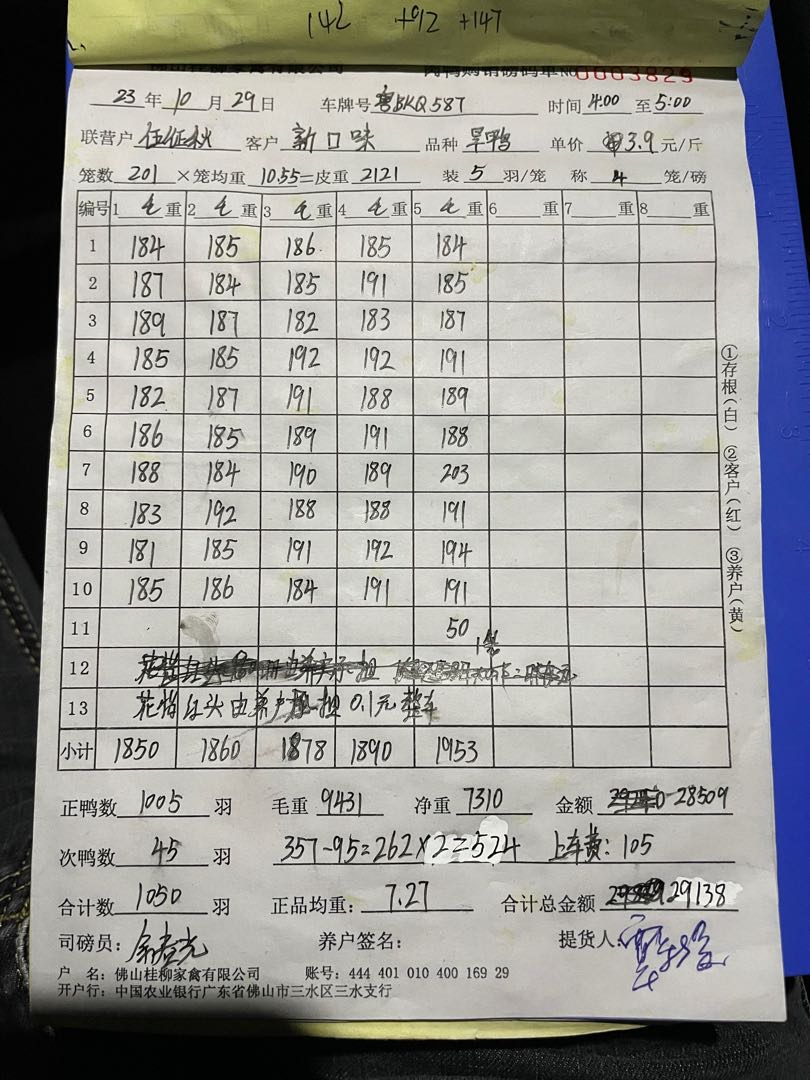 142 +92 +147
佛山桂柳家禽有限公司 肉鸭购销磅码单 NO 0003829
23 年 10 月 29 日 车牌号 粤BKQ587 时间 4:00 至 5:00
联营户 客户 新口味 品种 旱鸭 单价 3.9 元/斤
笼数 201 ×笼均重 10.55=皮重 2121 装 5 羽/笼 称 4 笼/磅
编号 1 毛 重 2 毛 重 3 毛 重 4 毛 重 5 毛 重 6 重 7 重 8 重
1 184 185 186 185 184
2 187 184 185 191 185
3 189 187 182 183 187
4 185 185 192 192 191
5 182 187 191 188 189
6 186 185 189 191 188
7 188 184 190 189 203
8 183 192 188 188 191
9 181 185 191 192 194
10 185 186 184 191 191
11 50
12
13 头由养户 担 0.1元整车
小计 1850 1860 1878 1890 1953
正鸭数 1005 羽 毛重 9431 净重 7310 金额 28509
次鸭数 45 羽 357-95=262×2=524 上车费:105
合计数 1050 羽 正品均重: 7.27 合计总金额 29138
司磅员: 养户签名: 提货人:
户 名:佛山桂柳家禽有限公司 账号:444 401 010 400 169 29
开户行:中国农业银行广东省佛山市三水区三水支行
①存根(白) ②客户(红) ③养户(黄)